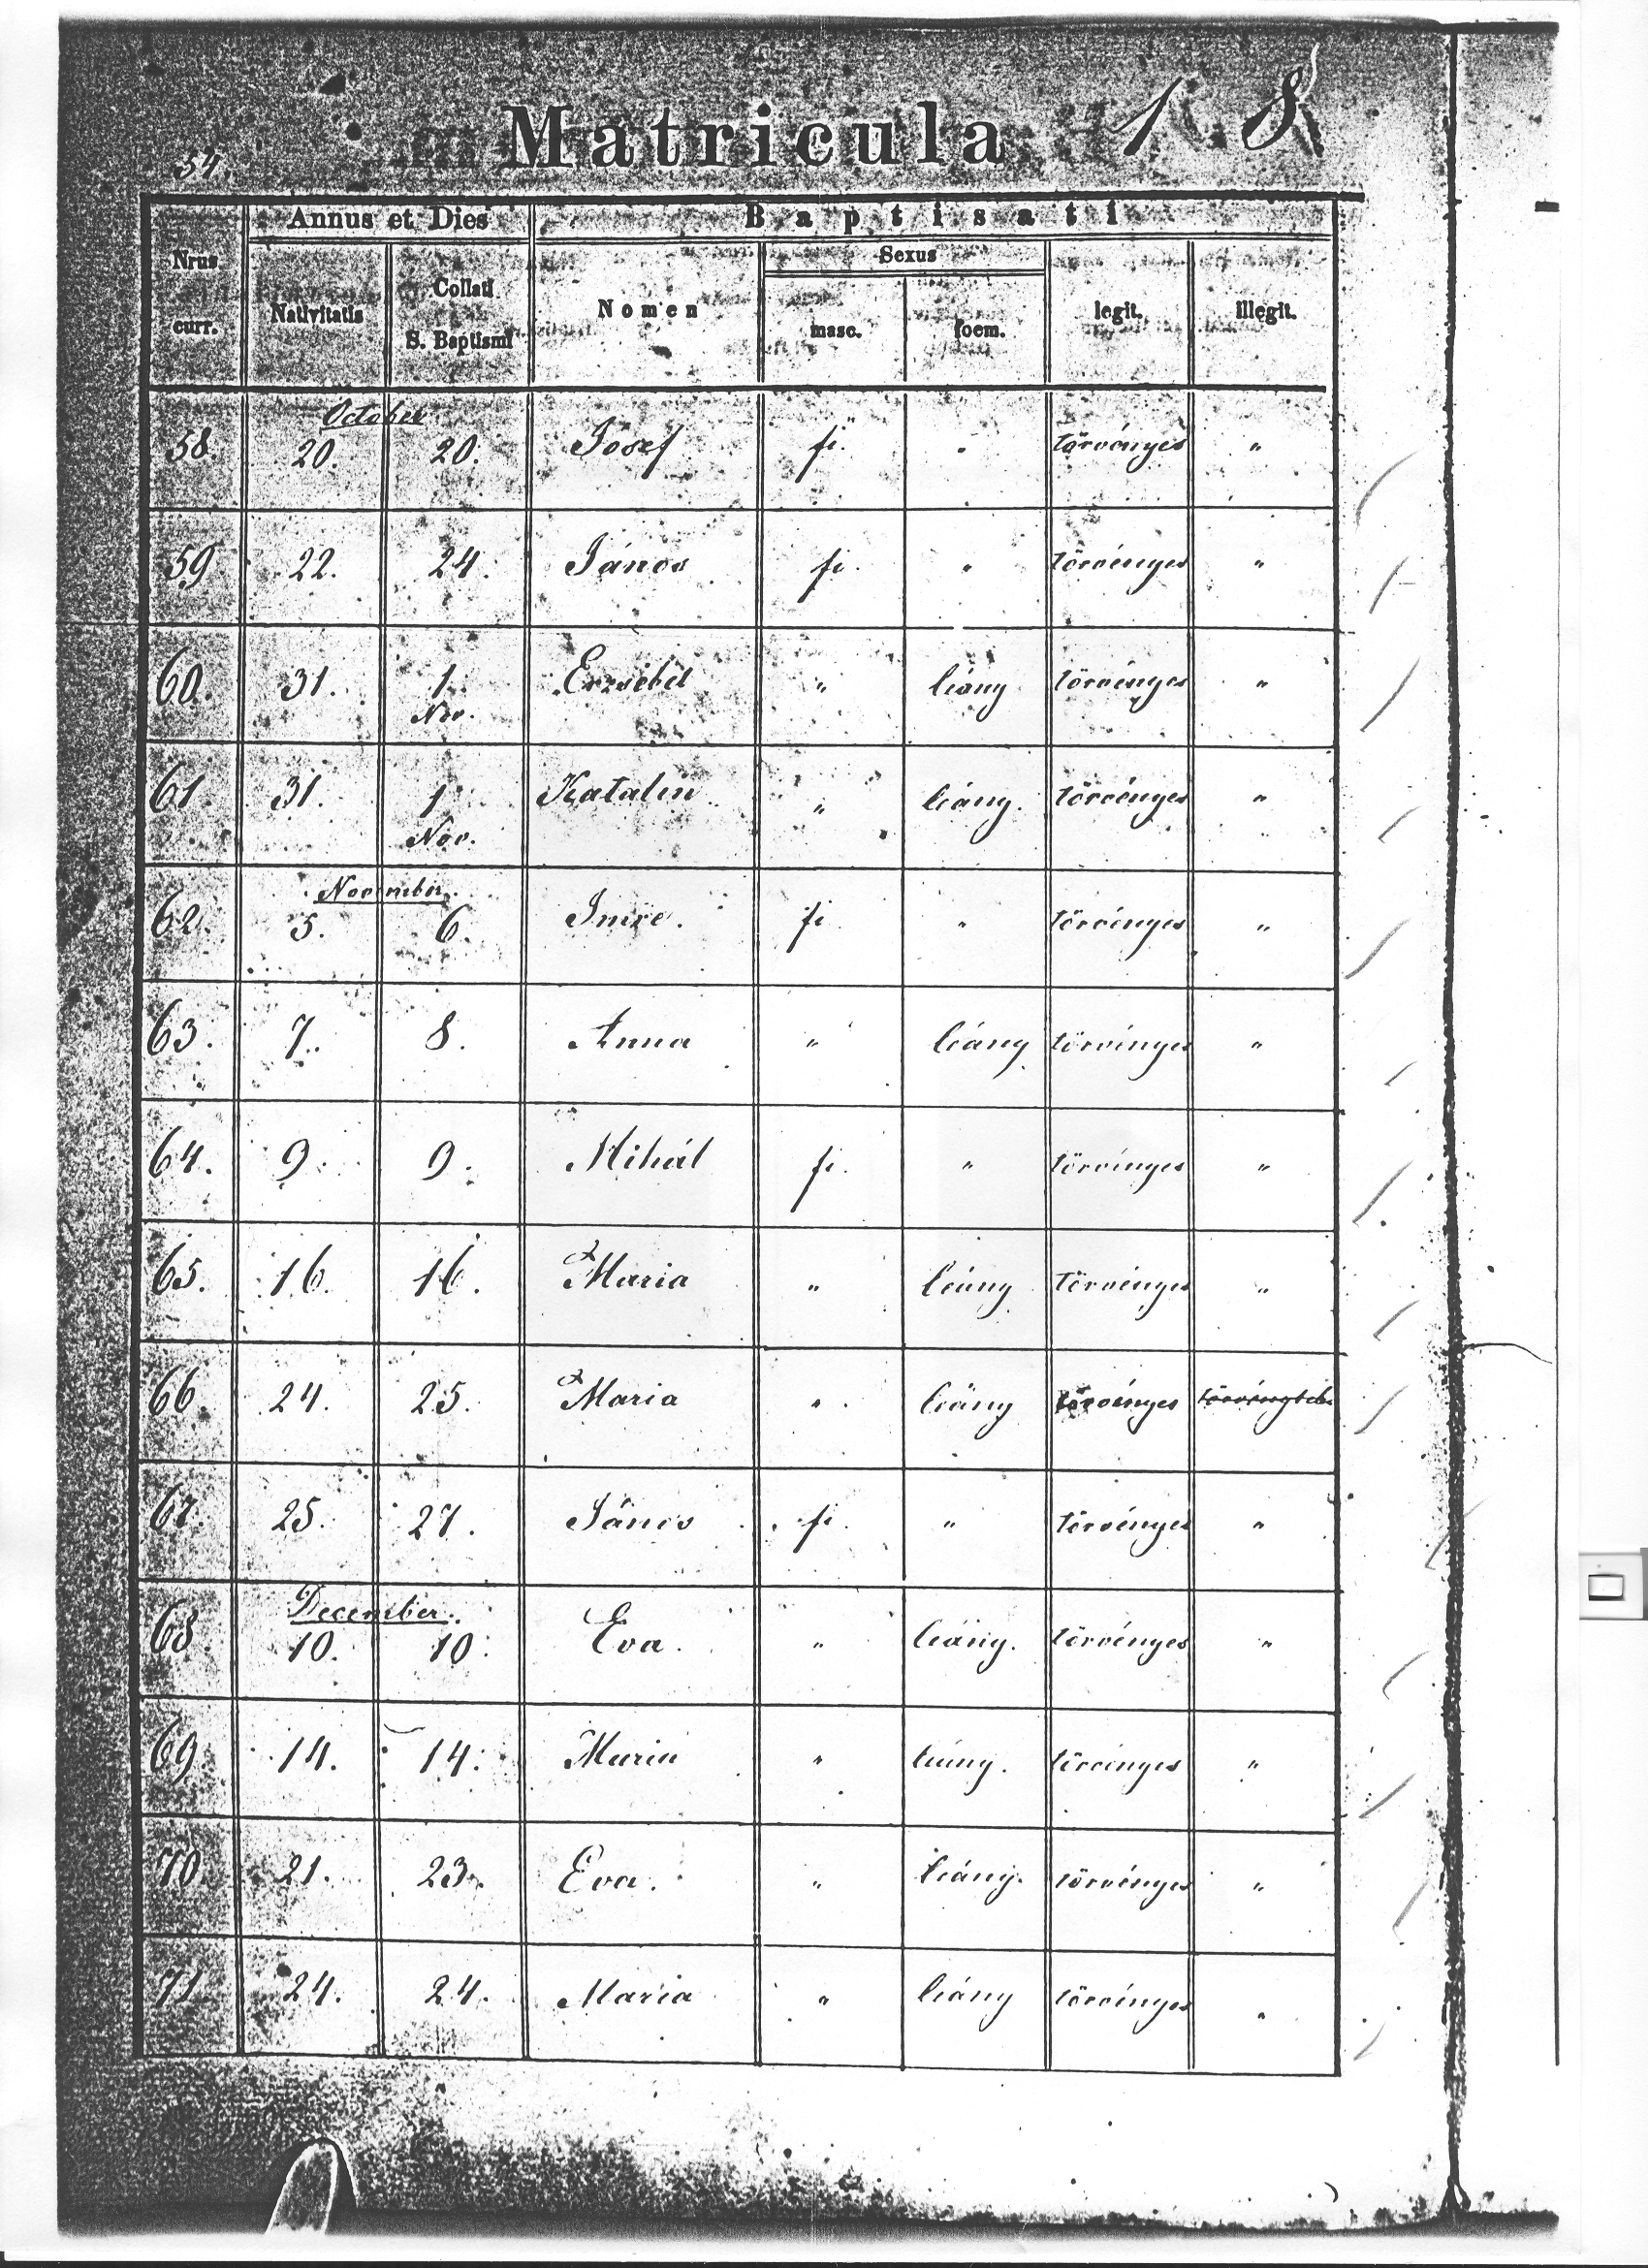 54. Matricula 1. 8
Annus et Dies Baptisati
Nrus curr. Nativitatis Collati S. Baptismi Nomen Sexus masc. foem. legit. illegit.
October
58. 20. 20. Josef fi. " törvényes "
59 22. 24. János fi. " törvényes "
60. 31. 1. Nov. Erzsébet " leány törvényes "
61 31. 1 Nov. Katalin " leány. törvényes "
November.
62. 5. 6. Imre. fi " törvényes "
63. 7. 8. Anna " leány törvényes "
64. 9. 9. Mihál fi. " törvényes "
65. 16. 16. Maria " leány törvényes "
66. 24. 25. Maria " leány törvényes törvénytelen
67. 25. 27. János fi. " törvényes "
December.
68. 10. 10. Eva. " leány. törvényes "
69 14. 14. Maria " leány. törvényes "
70. 21. 23. Eva. " leány. törvényes "
71 24. 24. Maria " leány törvényes "